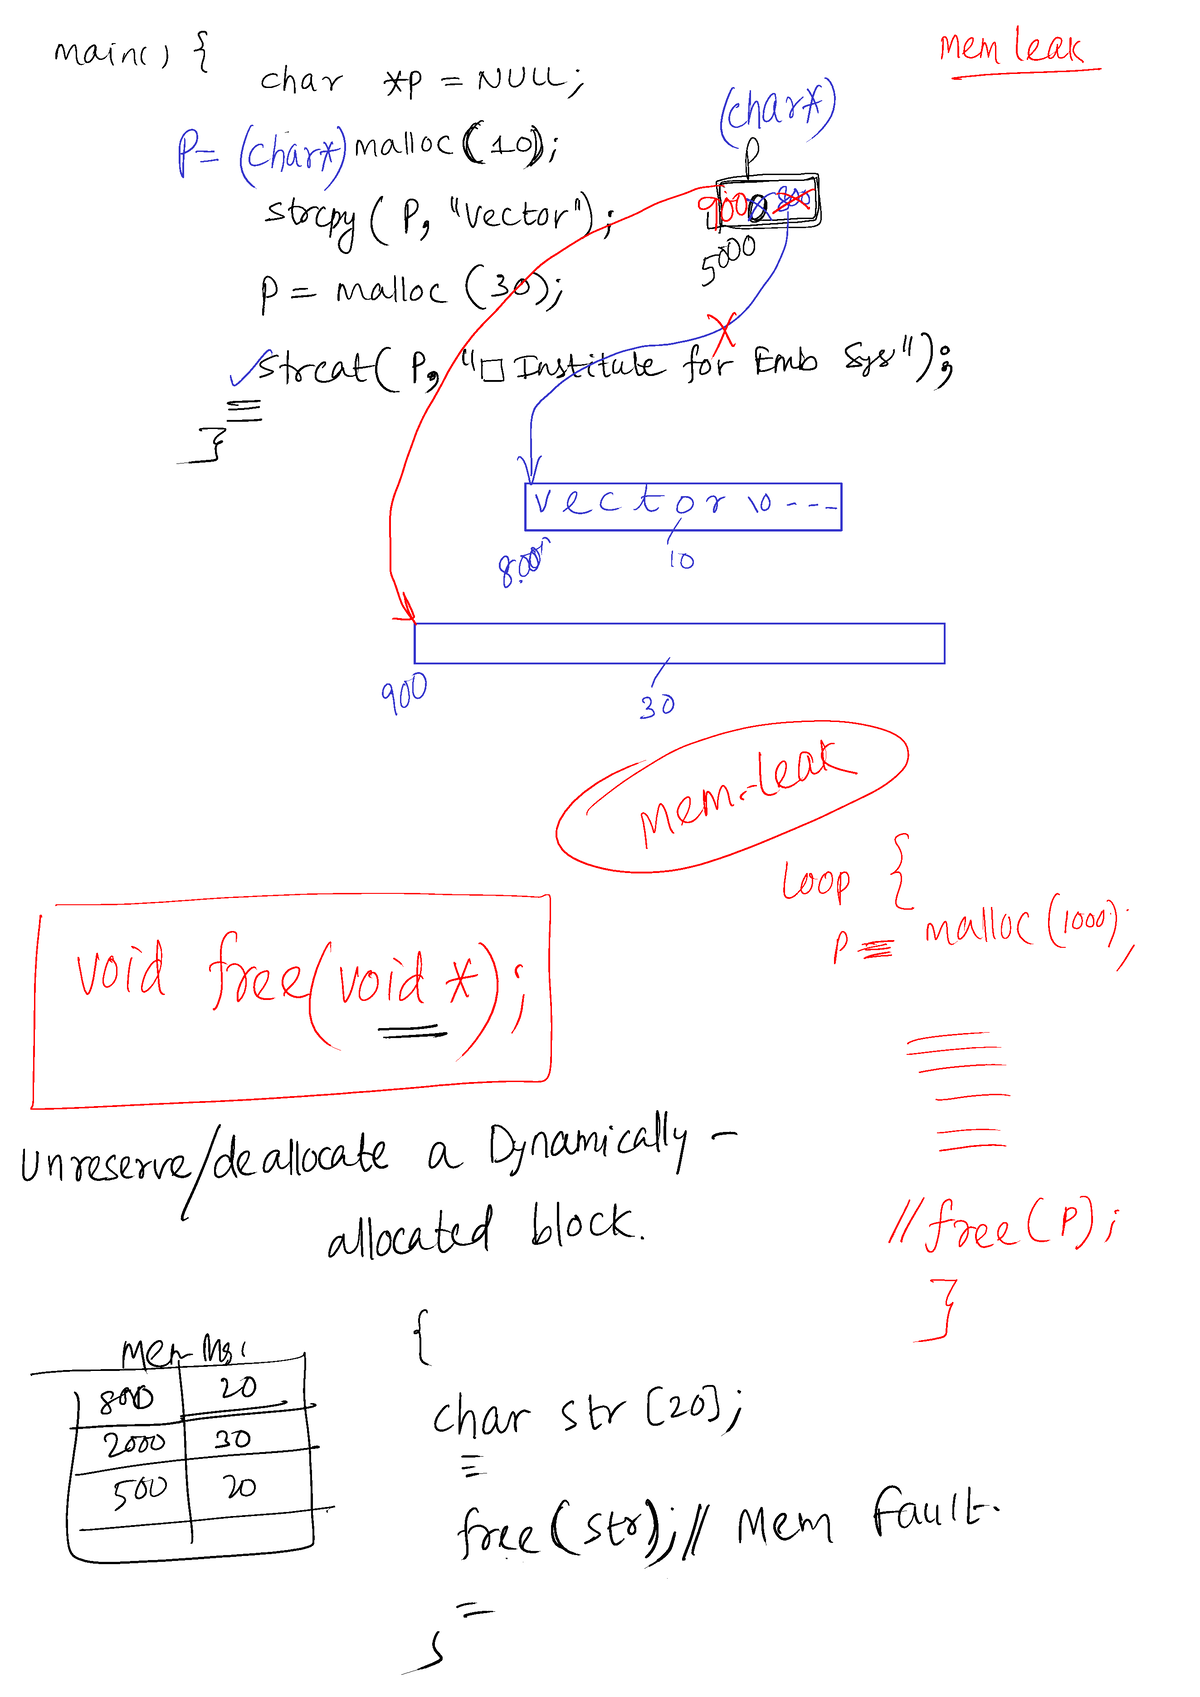 mem leak
main() {
char *p = NULL;
(char*)
P= (char*) malloc(10);
P
strcpy(P, "Vector");
900 0 800
5000
P = malloc (30);
strcat(P, "□ Institute for Emb Sys");
}
vector \0 ---
800
10
900
30
mem-leak
Loop {
P = malloc (1000);
void free(void *);
unreserve/deallocate a Dynamically -
allocated block.
//free(P);
}
{
Mem
800 20
2000 30
500 20
char str [20];
free(str);// Mem fault.
}